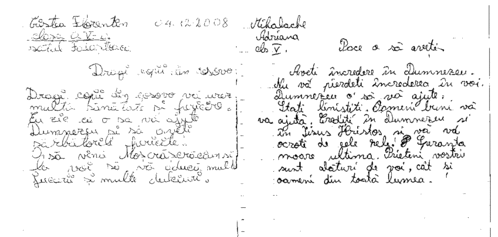 Cîrstea Florentin 04.12.2008
clasa a V-a
satul
Dragi copii din cosovo
Dragi copii din cosovo vă urez
multă sănătate și fericire.
Eu zic că o sa vă ajute
Dumnezeu și să aveți
sărbătorile fericite.
O să vină Moș crăciun și
la voi să vă aducă multe
jucării și multe dulciuri.
Mihalache
Adriana
cls V.
Pace o să aveți
Aveți încredere în Dumnezeu.
Nu vă pierdeți încrederea în voi.
Dumnezeu o să vă ajute.
Stați liniștiți. Oameni buni vă
va ajută. Credeți în Dumnezeu și
în Iisus Hristos și vă va
ocroti de cele rele! Speranța
moare ultima. Prieteni voștri
sunt alături de voi, cât și
oameni din toată lumea.